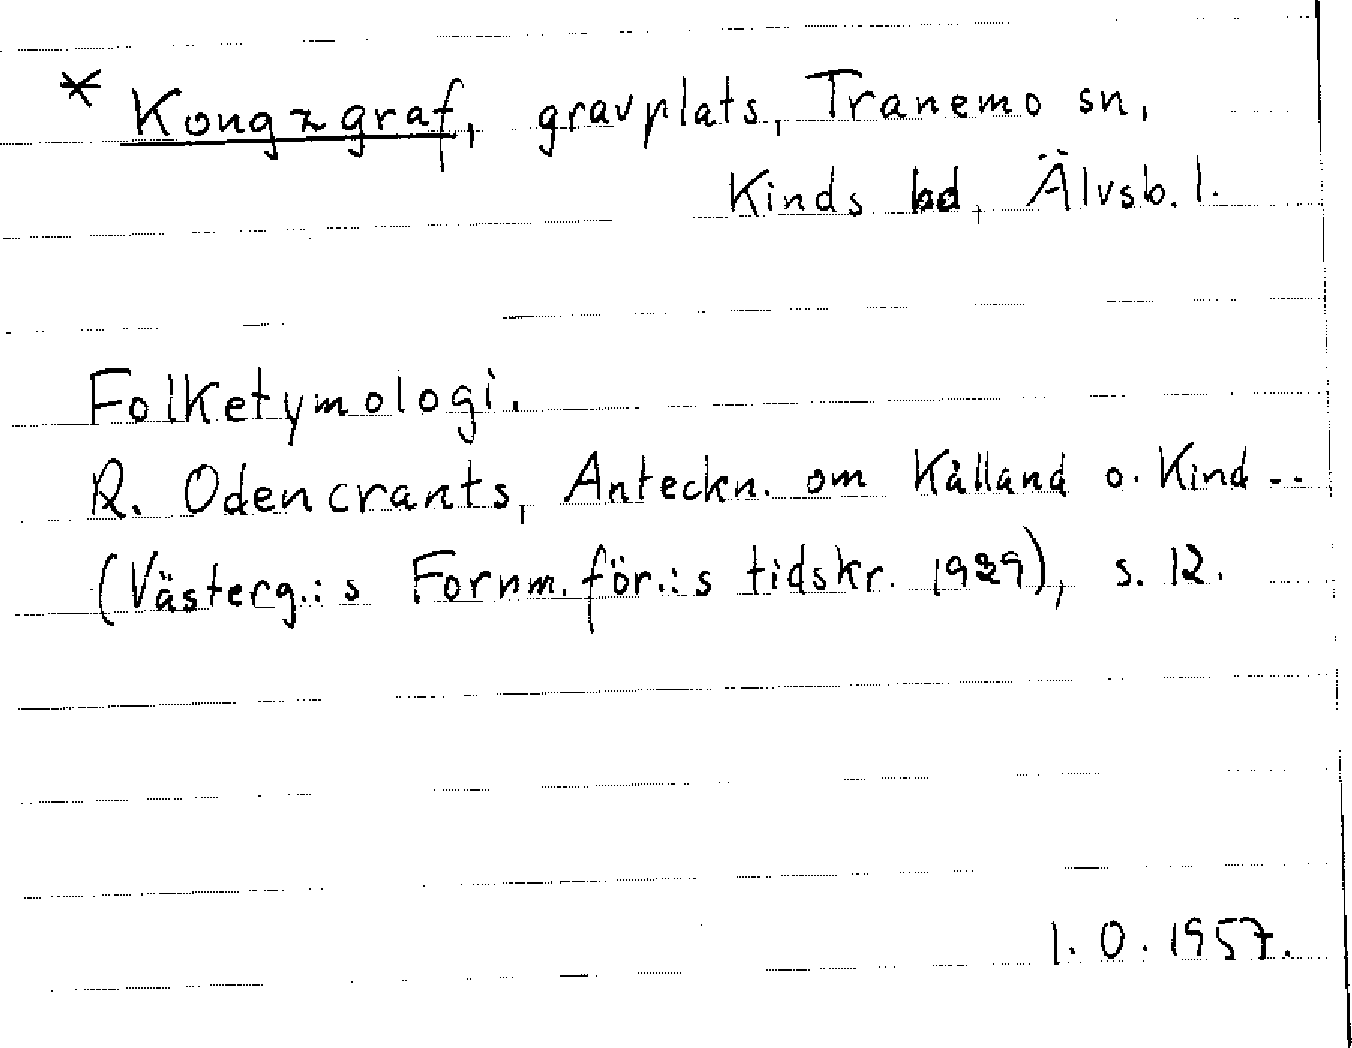 * Kongzgraf, gravplats, Tranemo sn,
Kinds hd, Älvsb. l.
Folketymologi.
R. Odencrants, Anteckn. om Kålland o. Kind --
(Västerg.:s Fornm.för.:s tidskr. 1929), s. 12.
I. O. 1957.